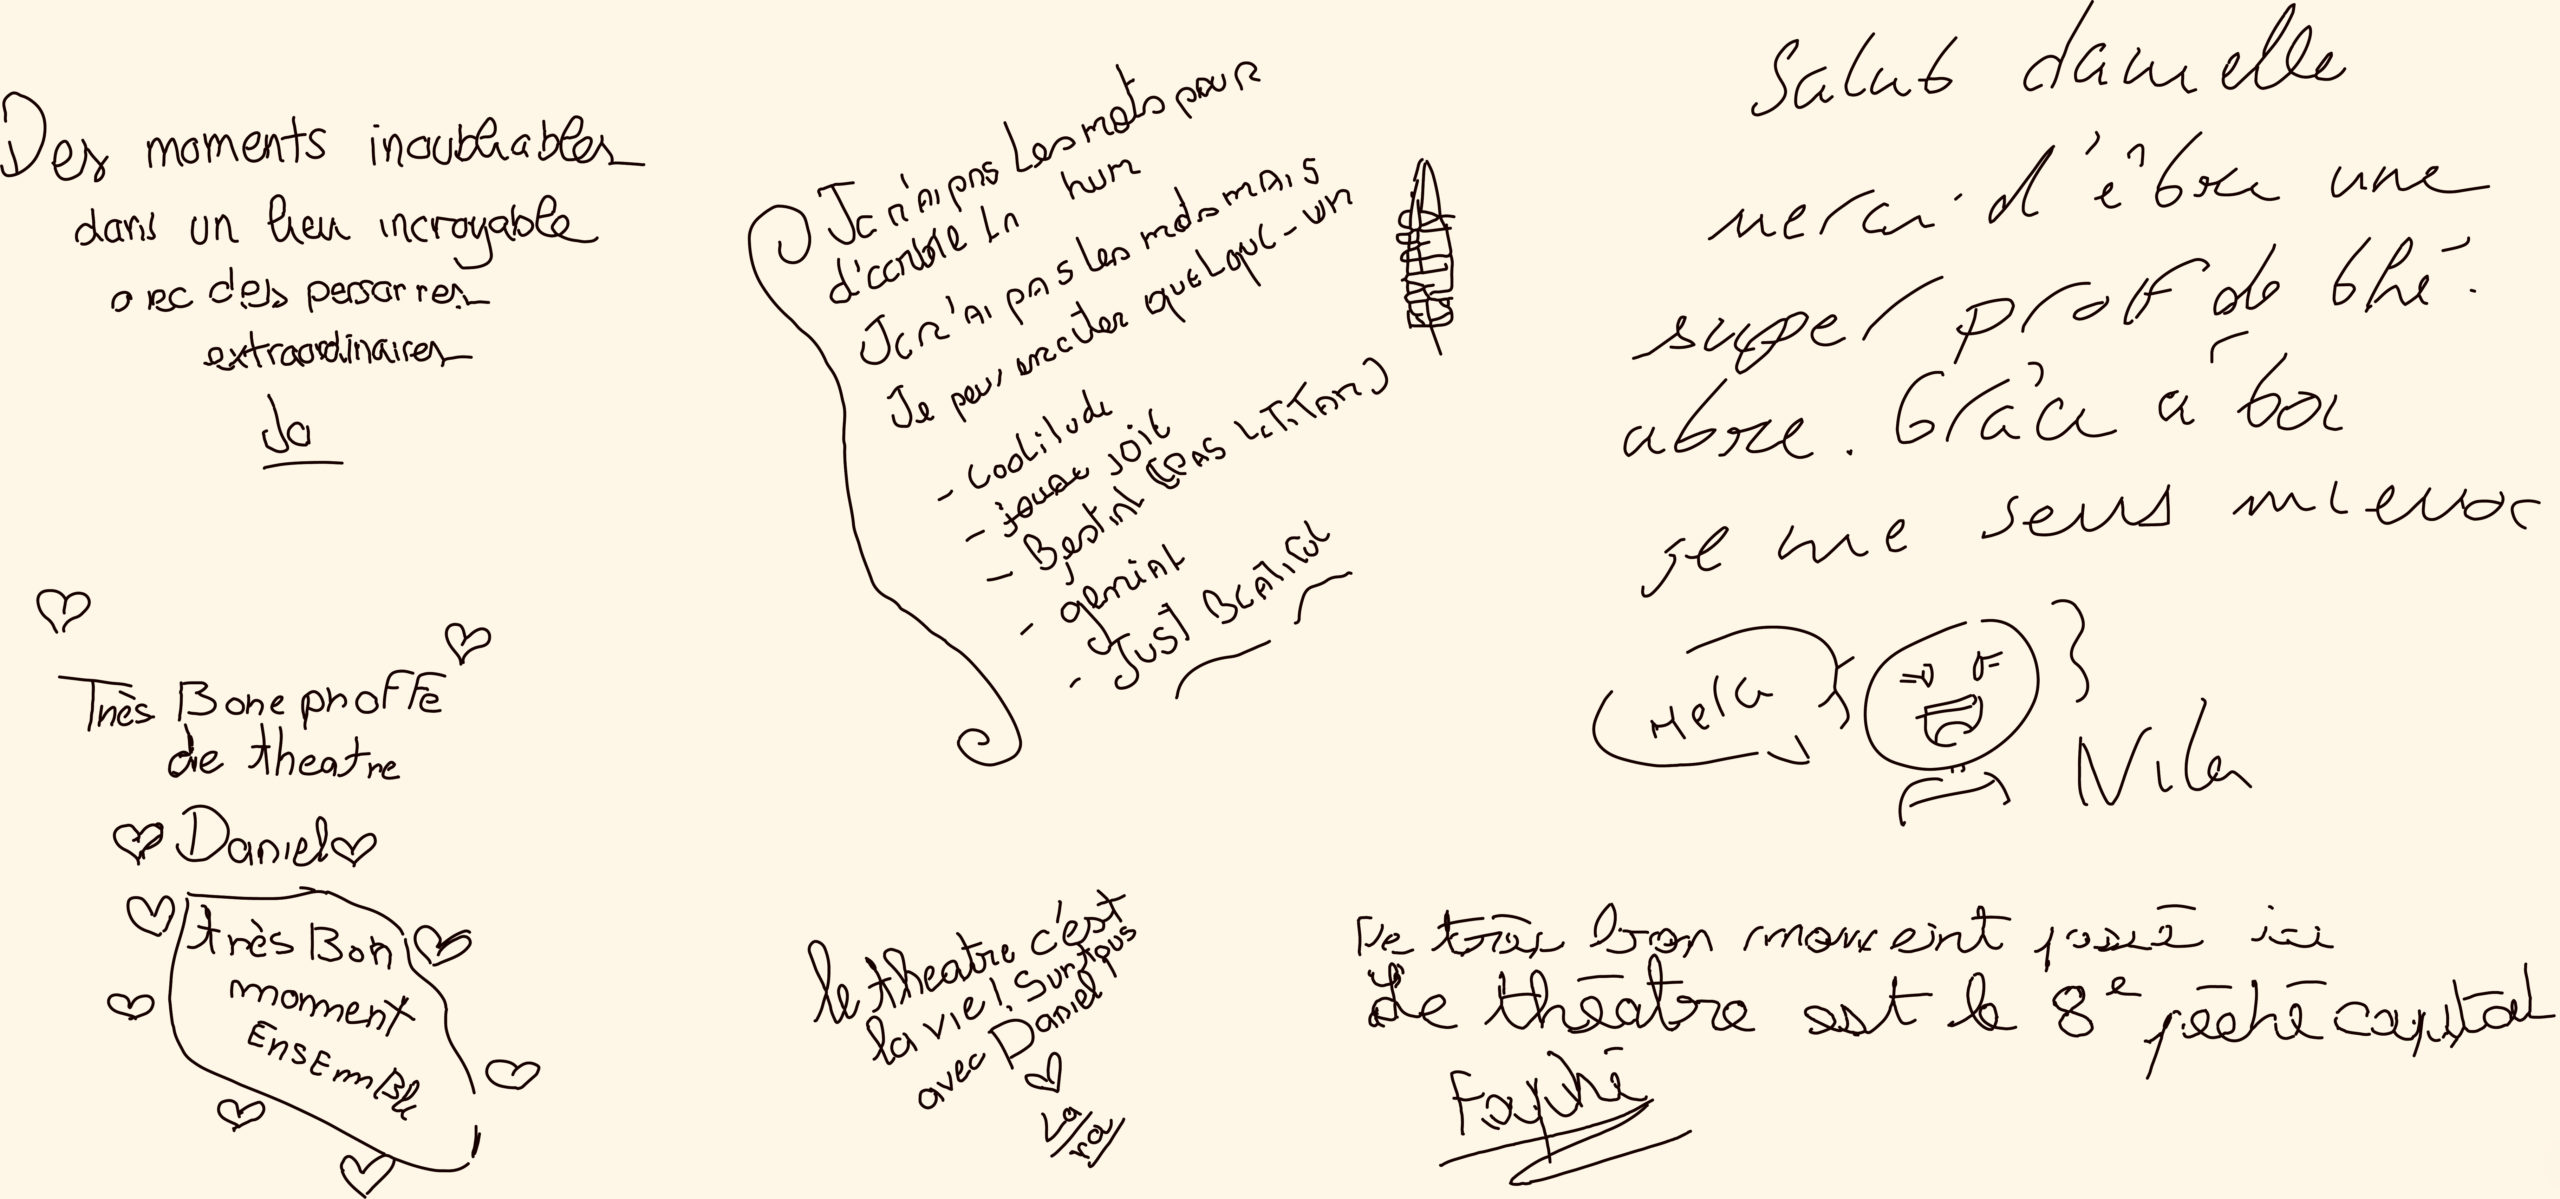 Des moments inoubliables
dans un lieu incroyable
avec des personnes
extraordinaires
Jo
Très Bone proffe
de theatre
Daniel
très Bon
moment
EnsEmBle
Je n'ai pas les mots pour
d'écrire la hum
Je n'ai pas les mots mais
Je peux enciter quelque-un
- coolitude
- joie
- Bestial (pas LeTiTAN)
- genial
- Just BEATiful
le theatre c'est
la vie! Surtous
avec Daniel!
La
ra
Salut danielle
merci d'être une
super prof de thé-
atre. Grâce à toi
je me sens mieux
Hela
De très bon moment passé ici
Le théâtre est le 8e péché capital